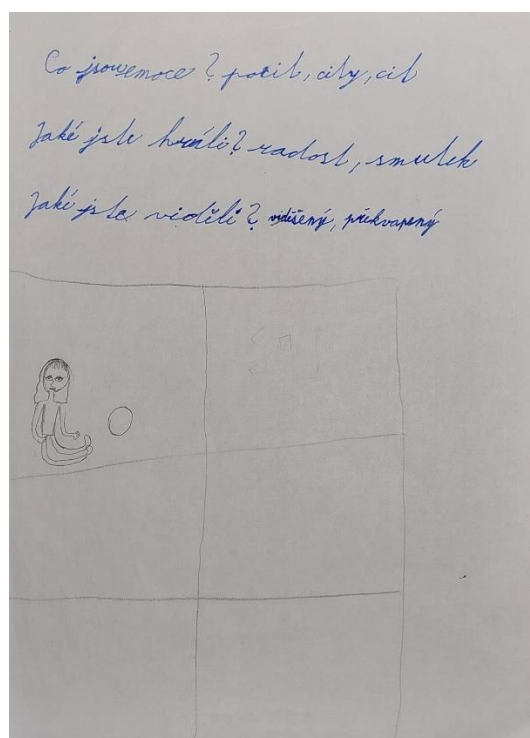 Co jsou emoce? pocit, city, cit
Jaké jste hráli? radost, smutek
Jaké jste viděli? vyděšený, překvapený